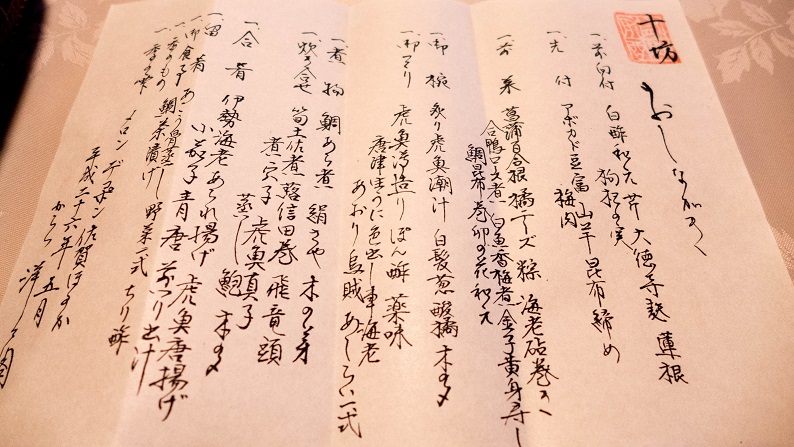 十坊
おしながき
一、前向付 白酢和え 芹 大徳寺麩 蓮根
枸杞の実
一、先付 アボカド豆腐 山芋昆布締め
梅肉
一、前菜 菖蒲百合根 橘チーズ 粽 海老砧巻き
合鴨ロース煮 白魚香梅煮 金子黄身寿し
鯛昆布巻 卯の花和え
一、御椀 炙り虎魚潮汁 白髪葱 酸橘 木の芽
一、御造り 虎魚薄造り ぽん酢 薬味
唐津ほうに 色出し車海老
あおり烏賊 あしらい一式
一、煮物 鯛あら煮 絹さや 木の芽
一、炊き合せ 筍土佐煮 蕗信田巻 飛竜頭
煮穴子 虎魚真子
一、合肴 蒸し鮑 木の芽
伊勢海老あられ揚げ 虎魚唐揚げ
小茄子 青唐 前つり出汁
一、留肴 あこう骨蒸し 野菜一式 ちり酢
一、御食事 鯛茶漬け
一、香のもの
一、季の雫 メロン デコポン 佐賀ほのか
平成二十六年 五月
からつ 洋々閣